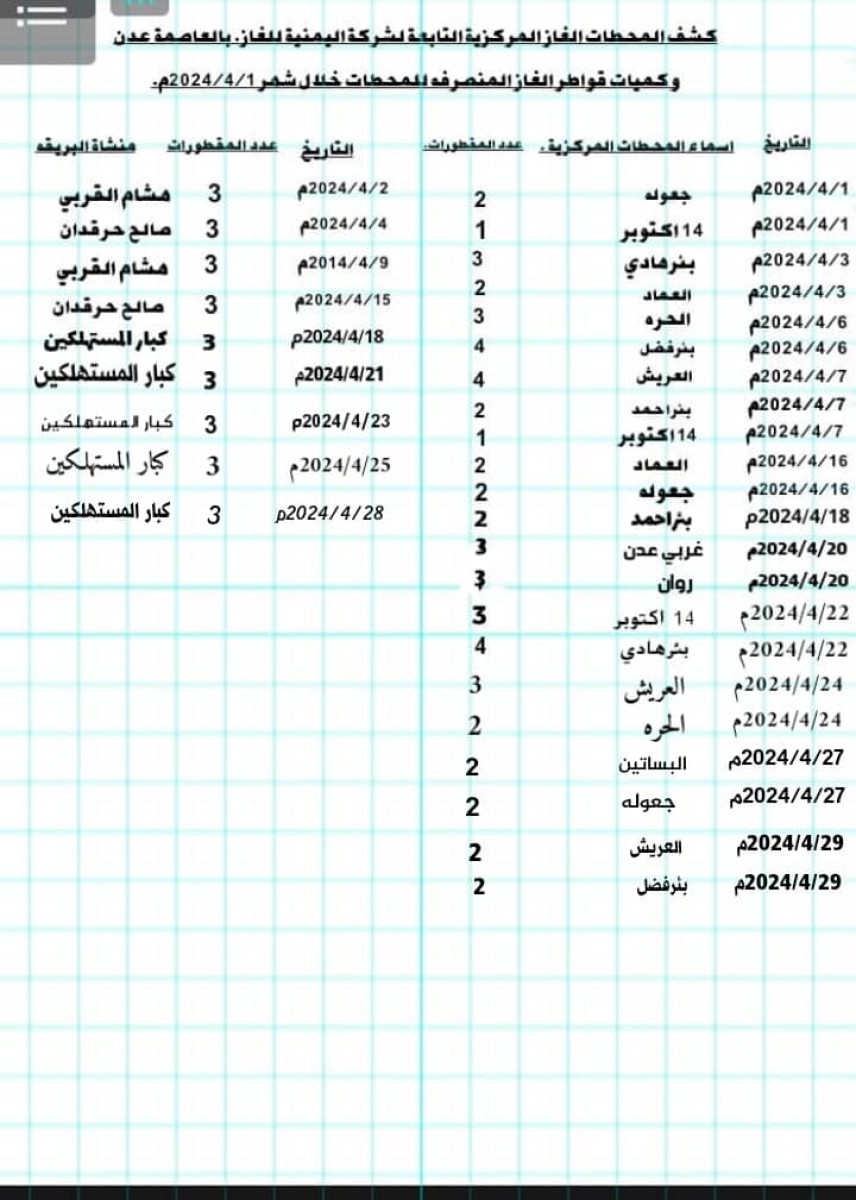 كشف المحطات الغاز المركزية التابعة لشركة اليمنية للغاز. بالعاصمة عدن
وكميات قواطر الغاز المنصرفه للمحطات خلال شهر 2024/4/1م.
التاريخ اسماء المحطات المركزية. عدد المقطورات. التاريخ عدد المقطورات منشاة البريقه
2024/4/1م جعوله 2 2024/4/2م هشام القربي 3
2024/4/1م 14 اكتوبر 1 2024/4/4م صالح حرقدان 3
2024/4/3م بئرهادي 3 2014/4/9م هشام القربي 3
2024/4/3م العماد 2 2024/4/15م صالح حرقدان 3
2024/4/6م الحره 3 2024/4/18م كبار المستهلكين 3
2024/4/6م بئرفضل 4 2024/4/21م كبار المستهلكين 3
2024/4/7م العريش 4 2024/4/23م كبار المستهلكين 3
2024/4/7م بئراحمد 2 2024/4/25م كبار المستهلكين 3
2024/4/7م 14 اكتوبر 1 2024/4/28م كبار المستهلكين 3
2024/4/16م العماد 2
2024/4/16م جعوله 2
2024/4/18م بئراحمد 2
2024/4/20م غربي عدن 3
2024/4/20م روان 3
2024/4/22م 14 اكتوبر 3
2024/4/22م بئرهادي 4
2024/4/24م العريش 3
2024/4/24م الحره 2
2024/4/27م البساتين 2
2024/4/27م جعوله 2
2024/4/29م العريش 2
2024/4/29م بئرفضل 2